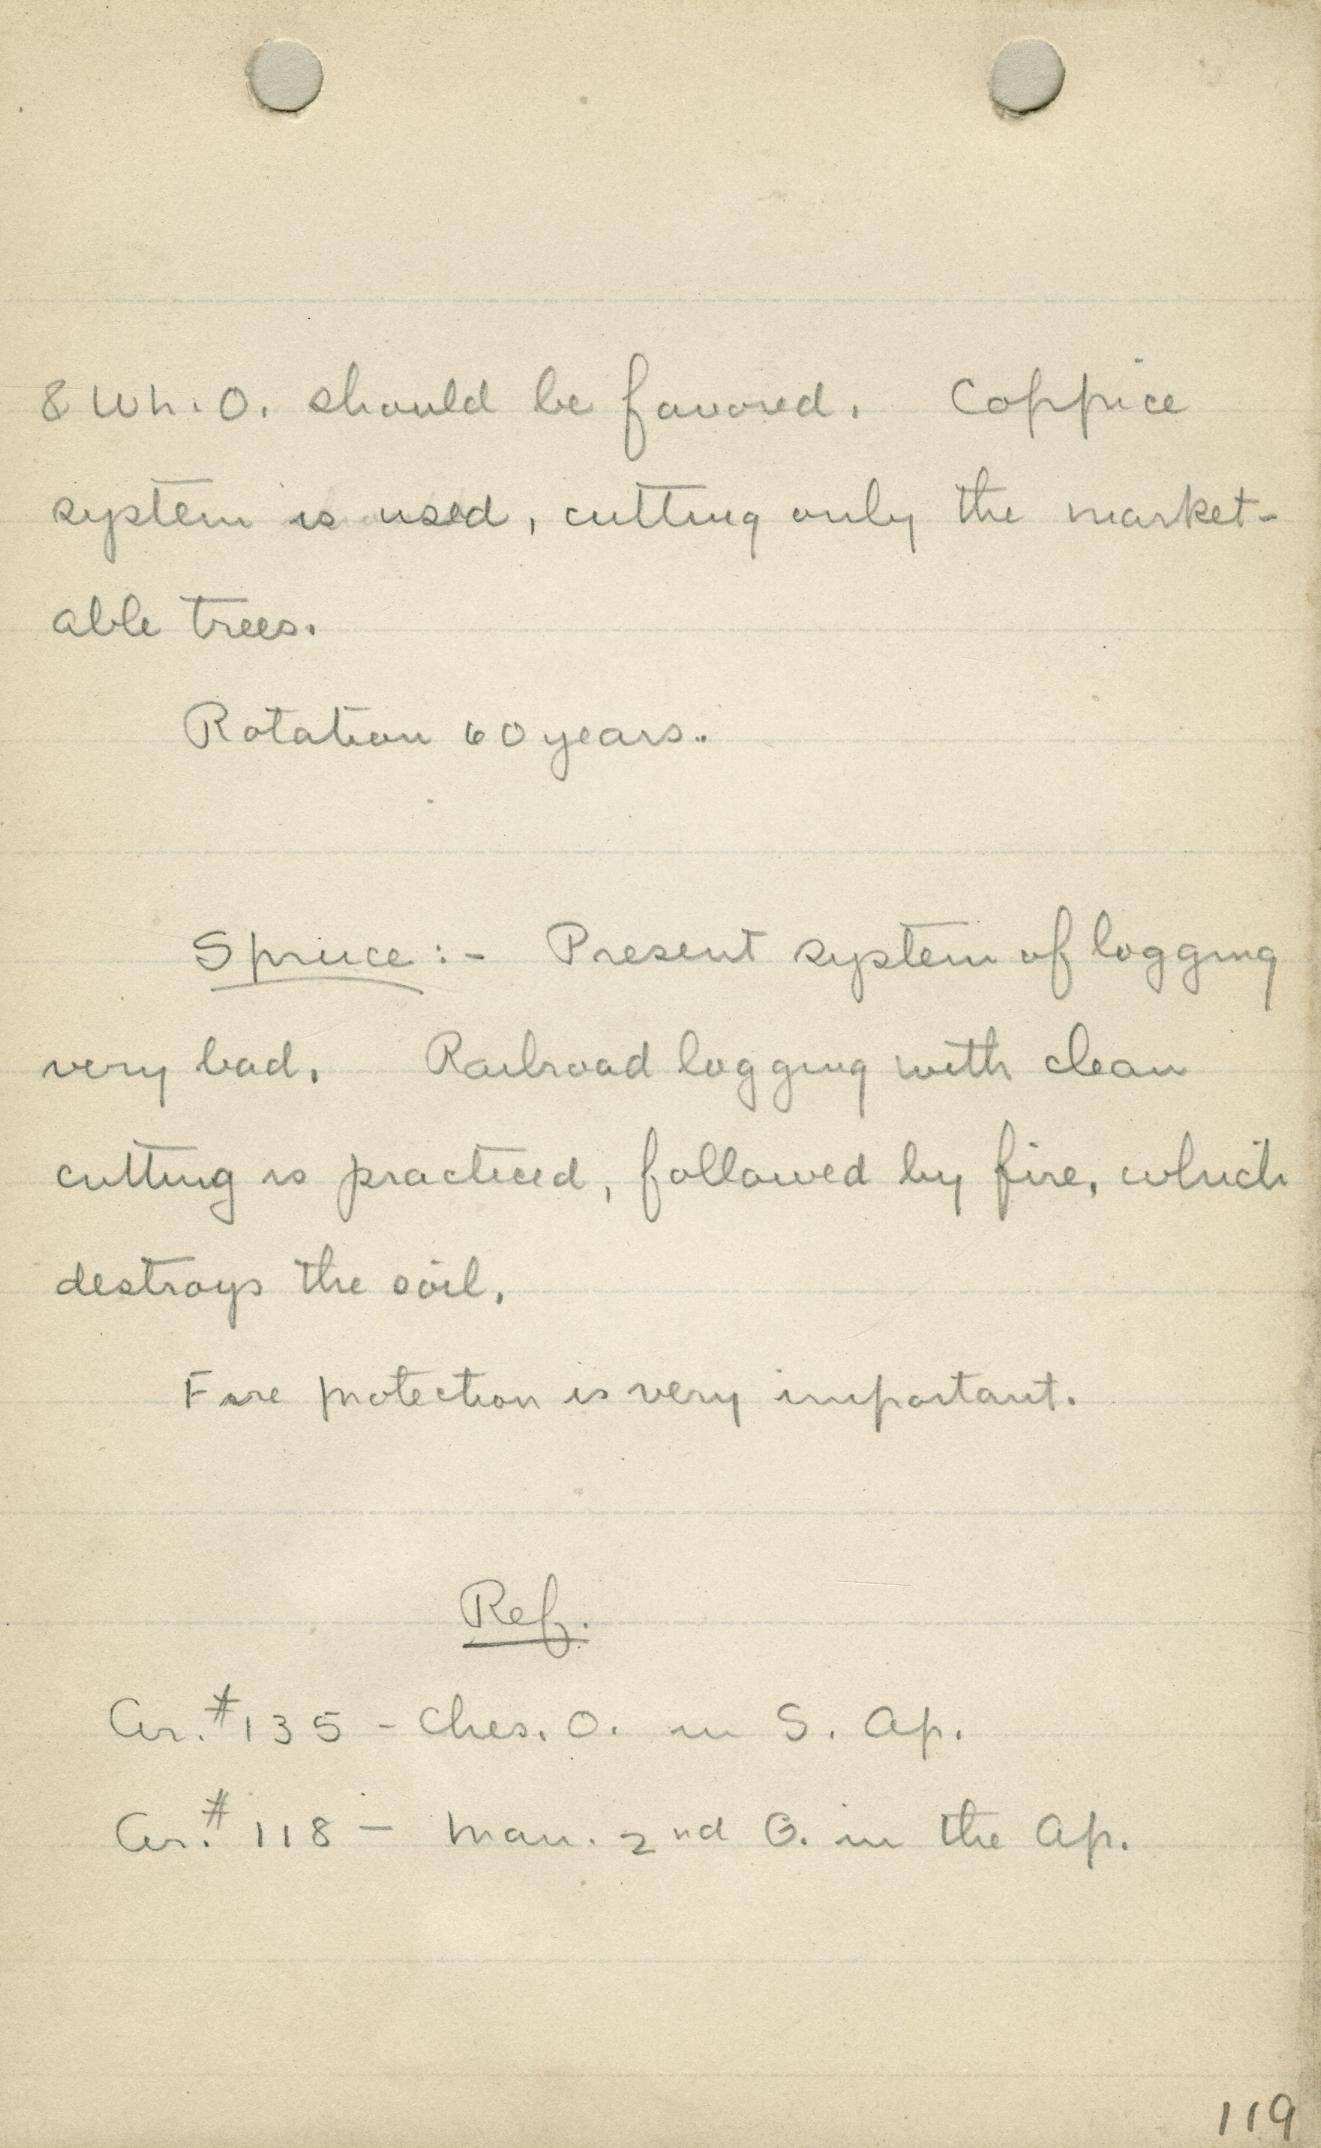 & Wh. O. should be favored. Coppice
system is used, cutting only the market-
able trees.
Rotation 60 years.
Spruce:- Present system of logging
very bad. Railroad logging with clean
cutting is practiced, followed by fire, which
destroys the soil.
Fire protection is very important.
Ref.
Cir. #135 - Ches. O. in S. Ap.
Cir. #118 - Man. 2nd G. in the Ap.
119